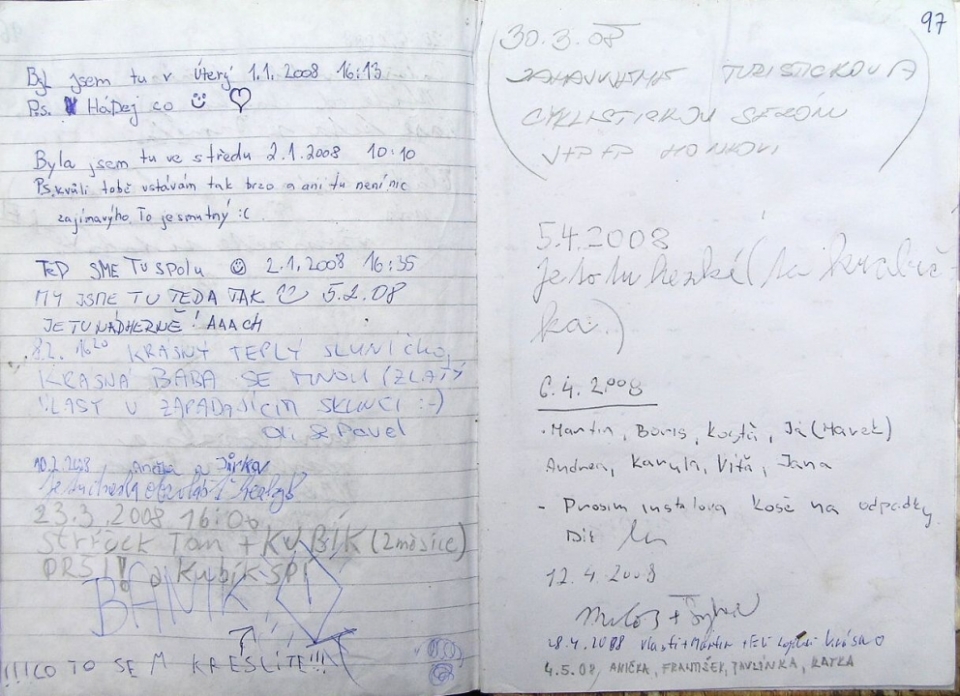 Byl jsem tu v Úterý 1.1.2008 16:13
P.s. Hádej co ☺ ♡
Byla jsem tu ve středu 2.1.2008 10:10
P.S. kvůli tobě vstávám tak brzo a ani tu není nic
zajímavýho. To je smutný :(
TEĎ SME TU SPOLU ☺ 2.1.2008 16:35
MY JSME TU TEDA TAK 5.2.08
JE TU NÁDHERNĚ! AAACH
8.2. 16 20 KRÁSNÝ TEPLÝ SLUNÍČKO,
KRÁSNÁ BABA SE MNOU (ZLATÝ
VLASY V ZAPADAJÍCÍM SLUNCI :-)
Oli & Pavel
10.2.2008 Anička a Jirka
23.3.2008 16:00
Strýček Tom + KUBÍK (2 měsíce)
PRŠÍ! a Kubík SPÍ
BANÍK
!!!CO TO SEM KRESLÍTE!!!
97
30.3.08
ZAHAJUJEME TURISTICKOU A
CYKLISTICKOU SEZÓNU
5.4.2008
je to tu hezké (ta krabič-
ka.)
6.4.2008
- Martin, Boris, Kosťa, Já (Marek)
Andrea, Víťa, Jana
- Prosím instalova koše na odpadky.
Dík
12.4.2008
28.4.2008 Vlasti+Martin
4.5.08, ANIČKA, FRANTIŠEK, PAVLÍNKA, KATKA